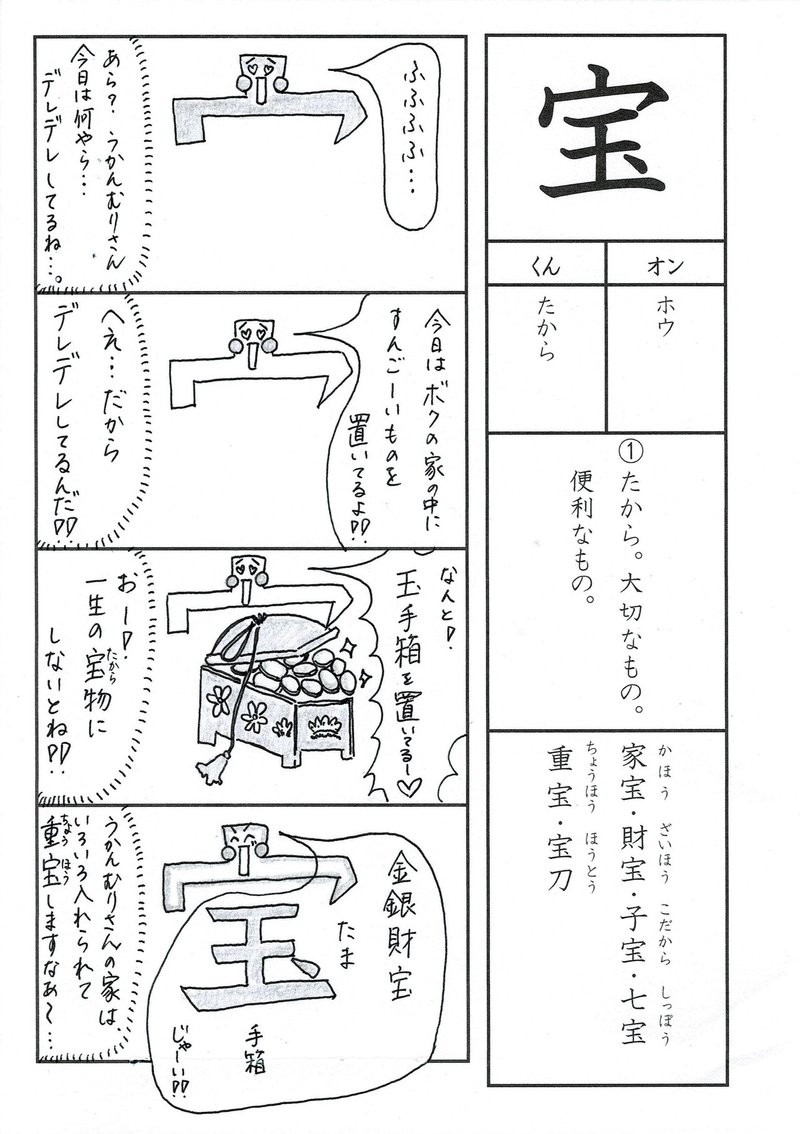 宝
オン
ホウ
くん
たから
①たから。大切なもの。
便利なもの。
かほう ざいほう こだから しっぽう
家宝・財宝・子宝・七宝
ちょうほう ほうとう
重宝・宝刀
ふふふふ…
あら？うかんむりさん
今日は何やら…
デレデレしてるね…。
今日はボクの家の中に
すんごーいものを
置いてるよ!!
へえ…だから
デレデレしてるんだ!!
なんと!
玉手箱を置いてるー♡
おー!
一生の宝物に
たから
しないとね!!
金銀財宝
たま
玉
手箱
じゃーい!!
うかんむりさんの家は、
いろいろ入れられて
ちょうほう
重宝しますなぁ〜…